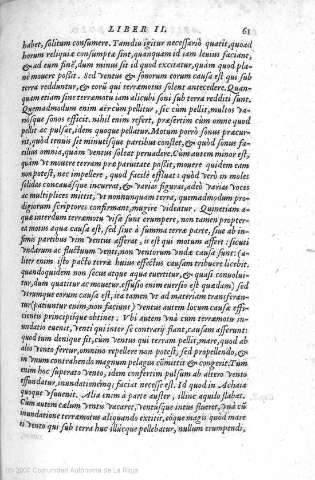 LIBER II. 61
habet, solitum consumere. Tamdiu igitur necessariò quatit, quoad
horum reliquiæ consumptæ sint, quanquam id iam leuius faciant,
& ad eum finē, dum minus sit id quod excitatur, quàm quod pla-
nè mouere possit. Sed ventus & sonorum eorum causa est qui sub
terra redduntur, & eorū qui terræmotus solent antecedere. Quan-
quam etiam sine terræmotu iam alicubi soni sub terra redditi sunt.
Quemadmodum enim aër cum pellitur, sic cum pellit, multos va-
riósque sonos efficit. nihil enim refert, præsertim cùm omne quod
pellit ac pulsat, idem quoque pellatur. Motum porrò sonus præcur-
rit, quòd tenuis sit minutísque partibus constet, & quòd sonus fa-
cilius omnia, quàm ventus soleat peruadere. Cùm autem minor est,
quàm vt mouere terram præ paruitate possit, mouere quidem eam
non potest, nec impellere, quod facilè effluat: quòd verò in moles
solidas concauásque incurrat, & varias figuras, adeò varias voces
ac multiplices mittit, vt nonnunquam terra, quemadmodum pro-
digiorum scriptores confirmant, mugire videatur. Quinetiam a-
quæ interdum terræmotu visæ sunt erumpere, non tamen propter-
ea motus aqua causa est, sed siue à summa terræ parte, siue ab in-
fimis partibus vim ventus afferat, is est qui motum affert: sicuti
vndarum ac fluctuum venti, non ventorum vndæ causa sunt: (a-
liter enim isto pacto terræ huius effectus causam tribuere licebit,
quandoquidem non secus atque aqua euertitur, & quasi conuolui-
tur, dum quatitur ac mouetur. effusio enim euersio est quædam) sed
vtrunque eorum causa est, ita tamen vt ad materiam transferan-
tur (patiuntur enim, non faciunt) ventus autem locum causæ effi-
cientis principióque obtinet: Vbi autem vnà cum terræmotu inu-
undatio euenit, venti qui inter se contrarij fiant, causam afferunt:
quod tum denique fit, cùm ventus qui terram pellit, mare, quod ab
alio vento fertur, omnino repellere non potest, sed propellendo, &
in vnum contrahendo magnum pelagus cōmittit & congerit. Tum
enim hoc superato vento, idem confertim pulsum ab altero vento
effundatur, inundationémq; faciat necesse est. Id quod in Achaia
quoque vsuuenit. Alia enim à parte auster, illinc aquilo flabat.
Cùm autem cælum vento vacaret, ventúsque intus flueret, vnà cū
inundatione terræmotus aliquando extitit, eóque magis quod mare
ei vento qui sub terra huc illúcque pellebatur, nullum erumpendi,
(c) 2007 Comunidad Autónoma de La Rioja